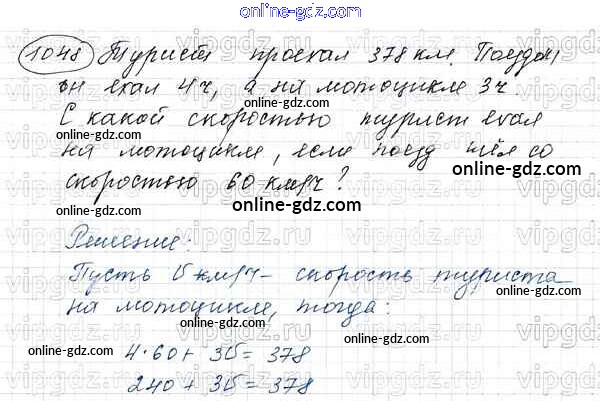 online-gdz.com
1048 Турист проехал 378 км. Поездом
он ехал 4ч, а на мотоцикле 3ч
online-gdz.com
С какой скоростью турист ехал
на мотоцикле, если поезд шёл со
online-gdz.com
скоростью 60 км/ч?
online-gdz.com
online-gdz.com
Решение:
online-gdz.com
Пусть v км/ч – скорость туриста
online-gdz.com
на мотоцикле, тогда:
online-gdz.com
online-gdz.com
4·60 + 3v = 378
online-gdz.com
240 + 3v = 378
online-gdz.com